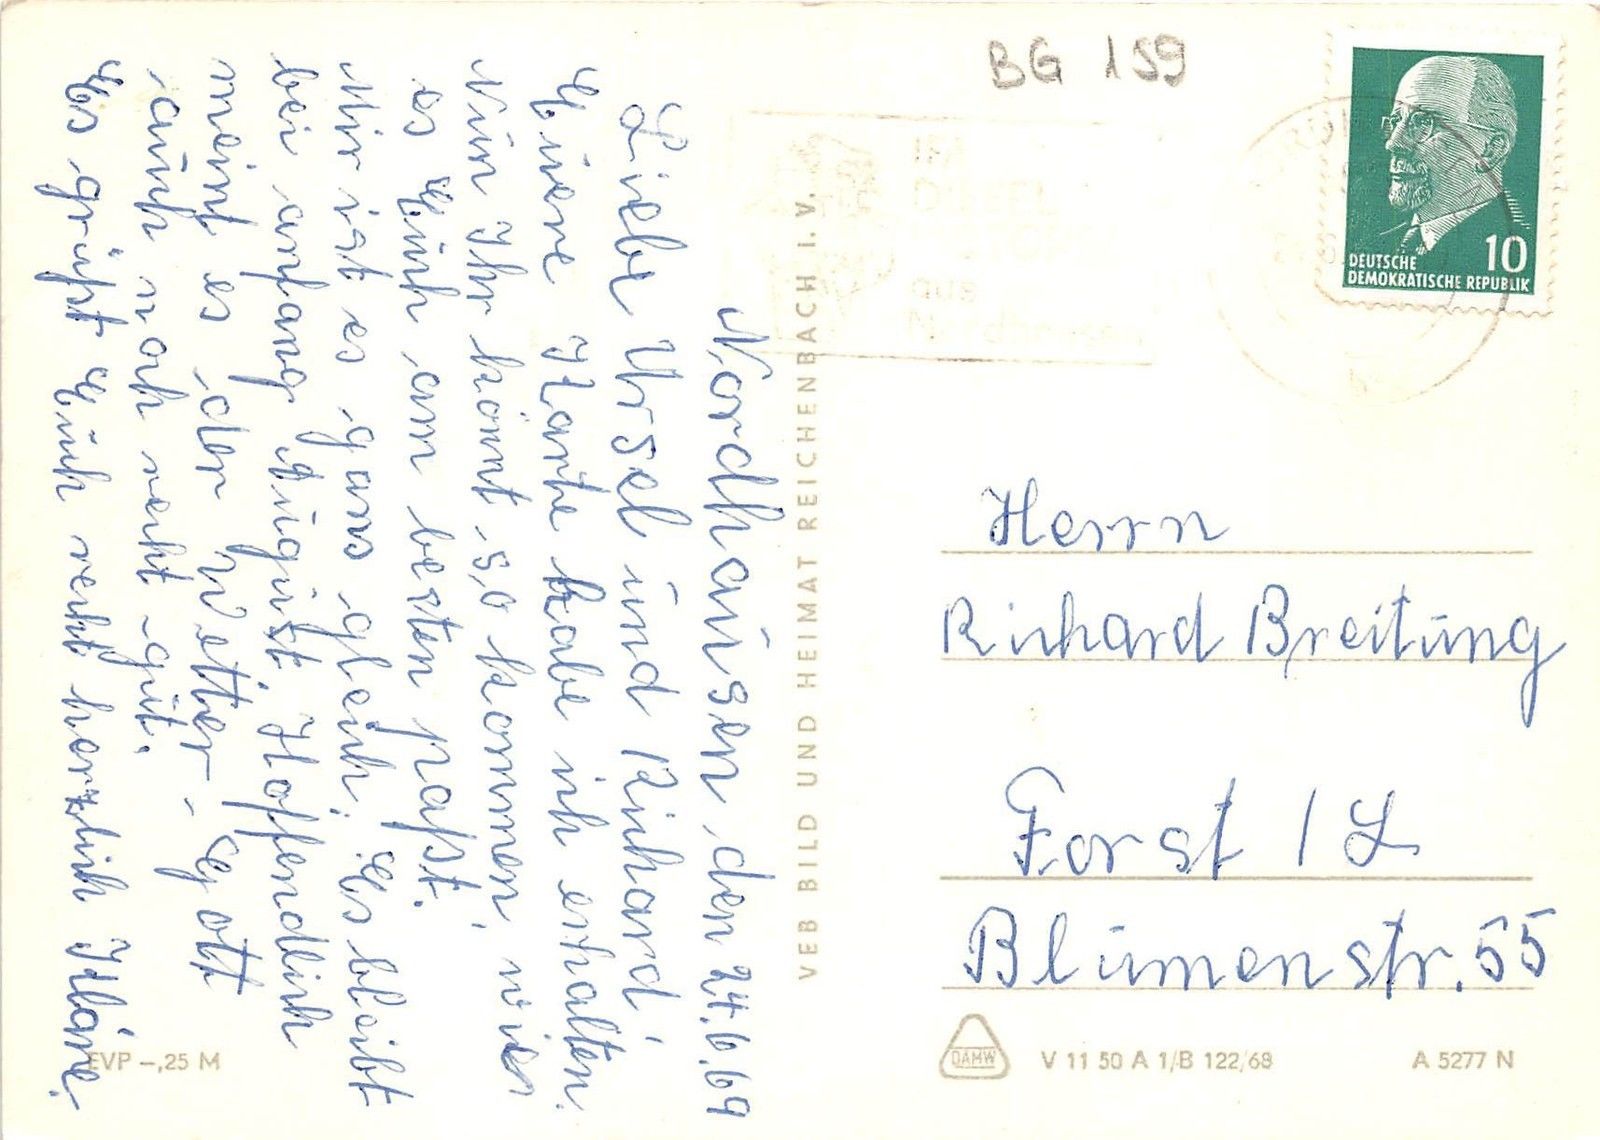 Nordhausen, den 24.6.69
Liebe Ursel und Richard!
Eure Karte habe ich erhalten.
Nun Ihr könnt so kommen, wies
es Euch am besten paßt.
Mir ist es ganz gleich. Es bleibt
bei anfang August. Hoffendlich
meint es der Wetter-Gott
auch noch recht gut.
Es grüßt Euch recht herzlich Kläre.
EVP -,25 M
VEB BILD UND HEIMAT REICHENBACH I. V.
BG 159
IFA
DIESEL
aus
Nordhausen
10
DEUTSCHE
DEMOKRATISCHE REPUBLIK
Herrn
Richard Breitung
Forst / L
Blumenstr. 55
DAMW
V 11 50 A 1/B 122/68
A 5277 N